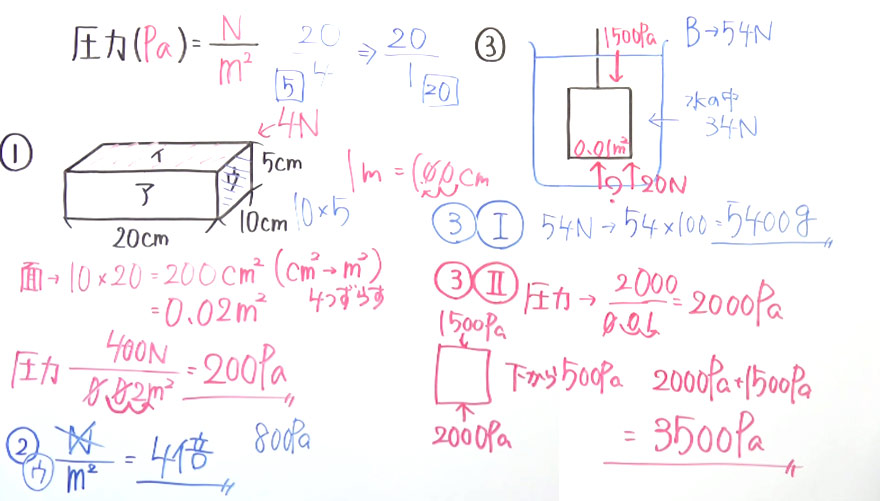 圧力(Pa)= N/m²
20/4 ⇒ 20/1
5
20
①
4N
イ
ア
ウ
5cm
10cm
20cm
10×5
1m = 100cm
面→10×20=200cm² (cm²→m²)
=0.02m² 4つずらす
圧力 400N/0.02m² = 200Pa
② ウ N/m² = 4倍 800Pa
③
1500Pa
B→54N
水の中
34N
0.01m²
? 20N
③ Ⅰ 54N→54×100=5400g
③ Ⅱ 圧力→ 2000/0.01 = 2000Pa
1500Pa
下から500Pa 2000Pa+1500Pa
2000Pa
= 3500Pa